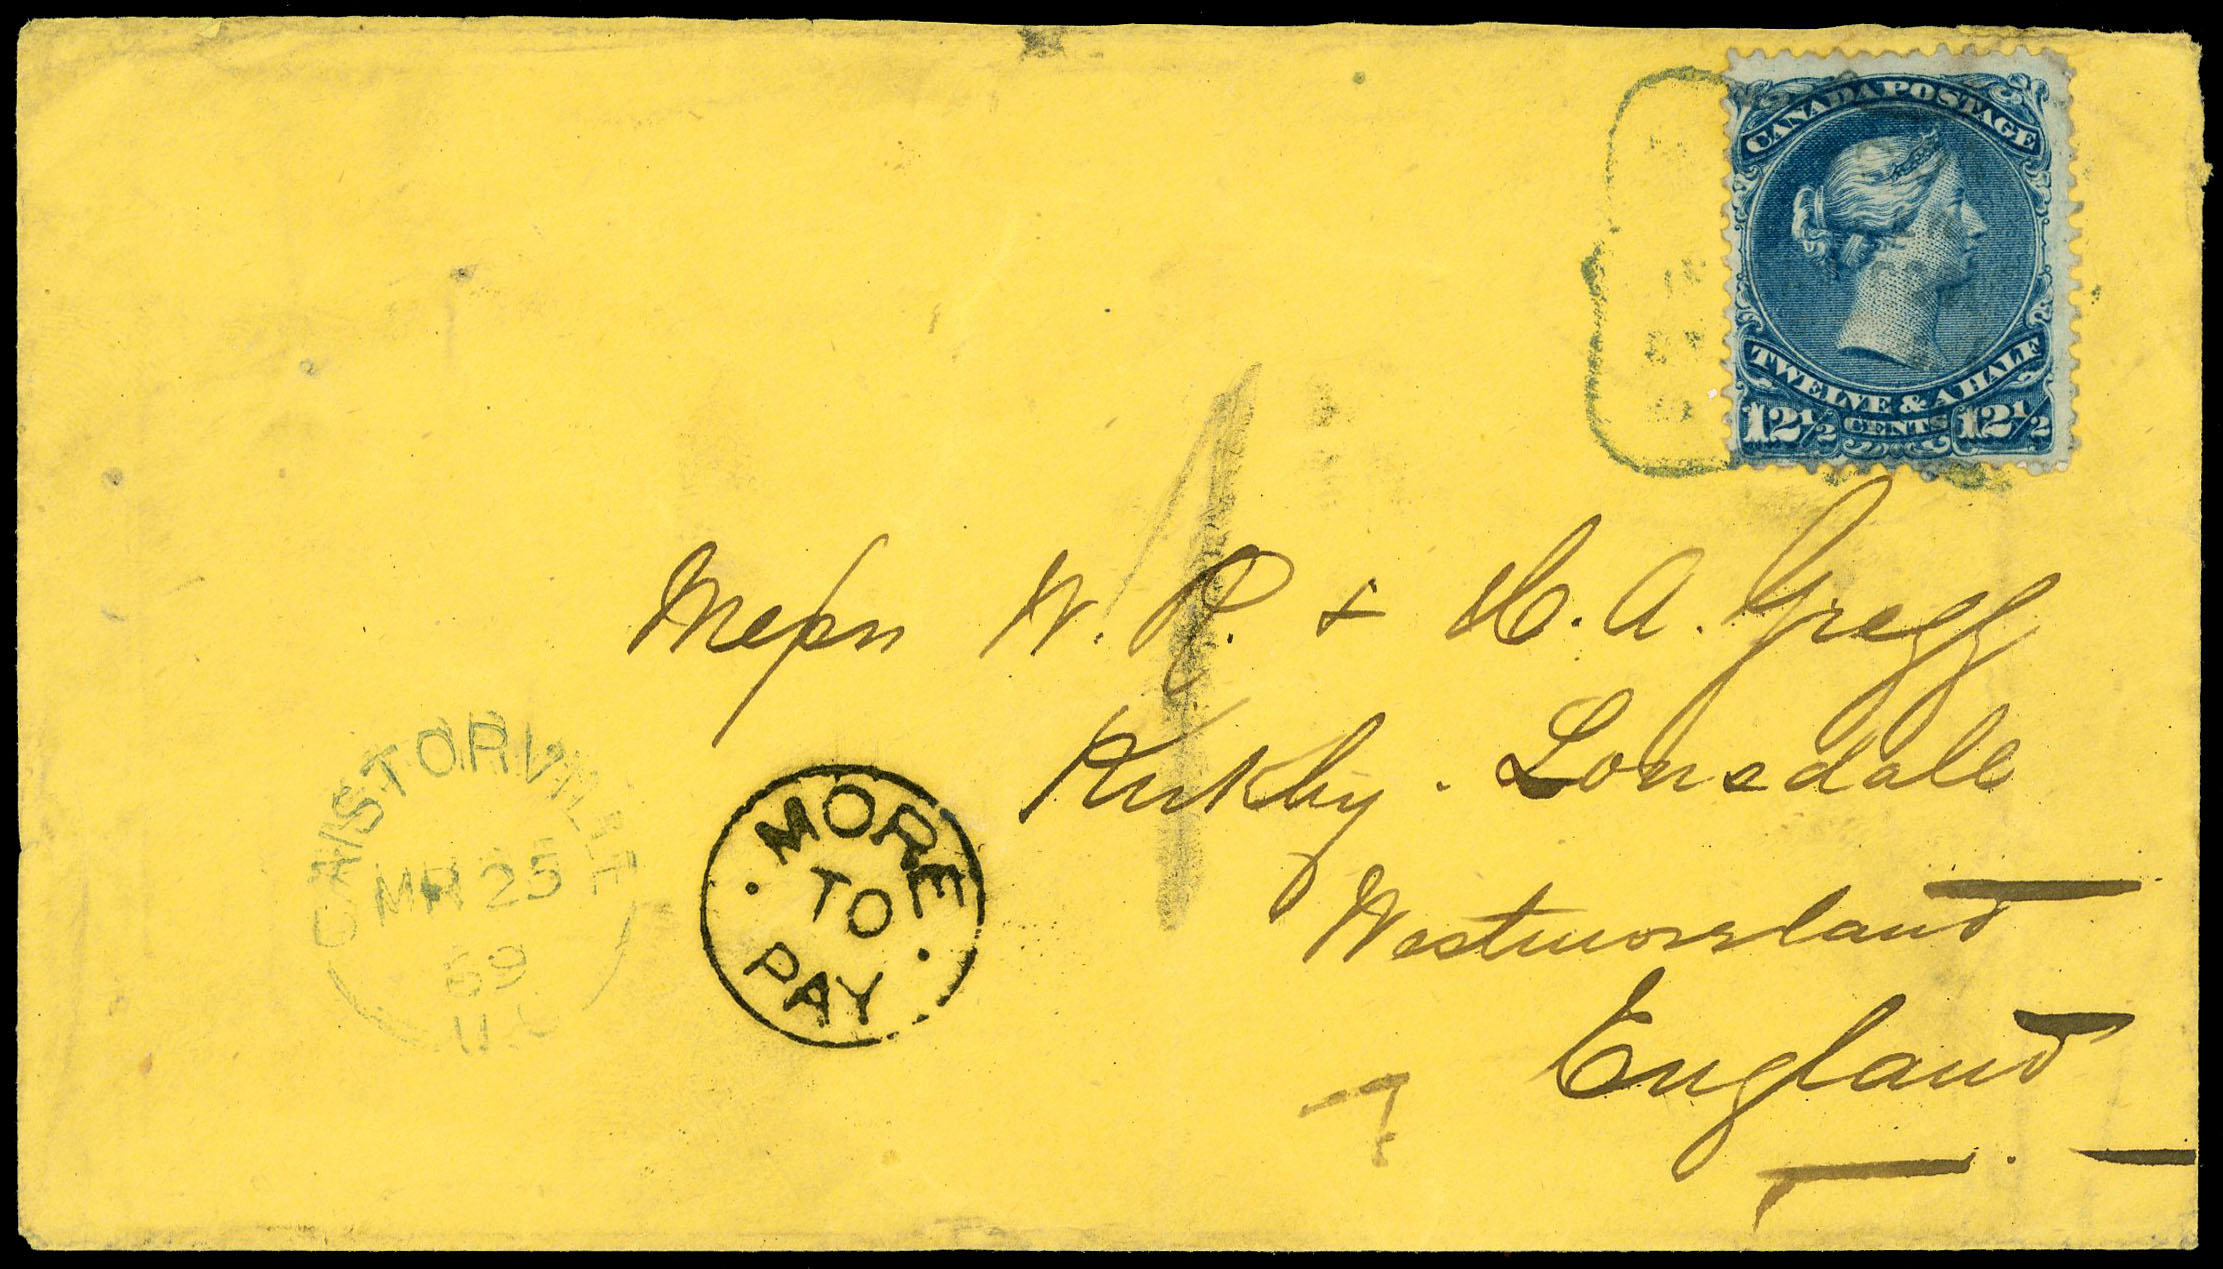 CANADA POSTAGE
TWELVE & A HALF
12½ CENTS 12½
1
Messrs W. R. & H. A. Gregg
Kirkby. Lonsdale
Westmorsland
England
CAISTORVILLE
MR 25
69
U.C
MORE
TO
PAY